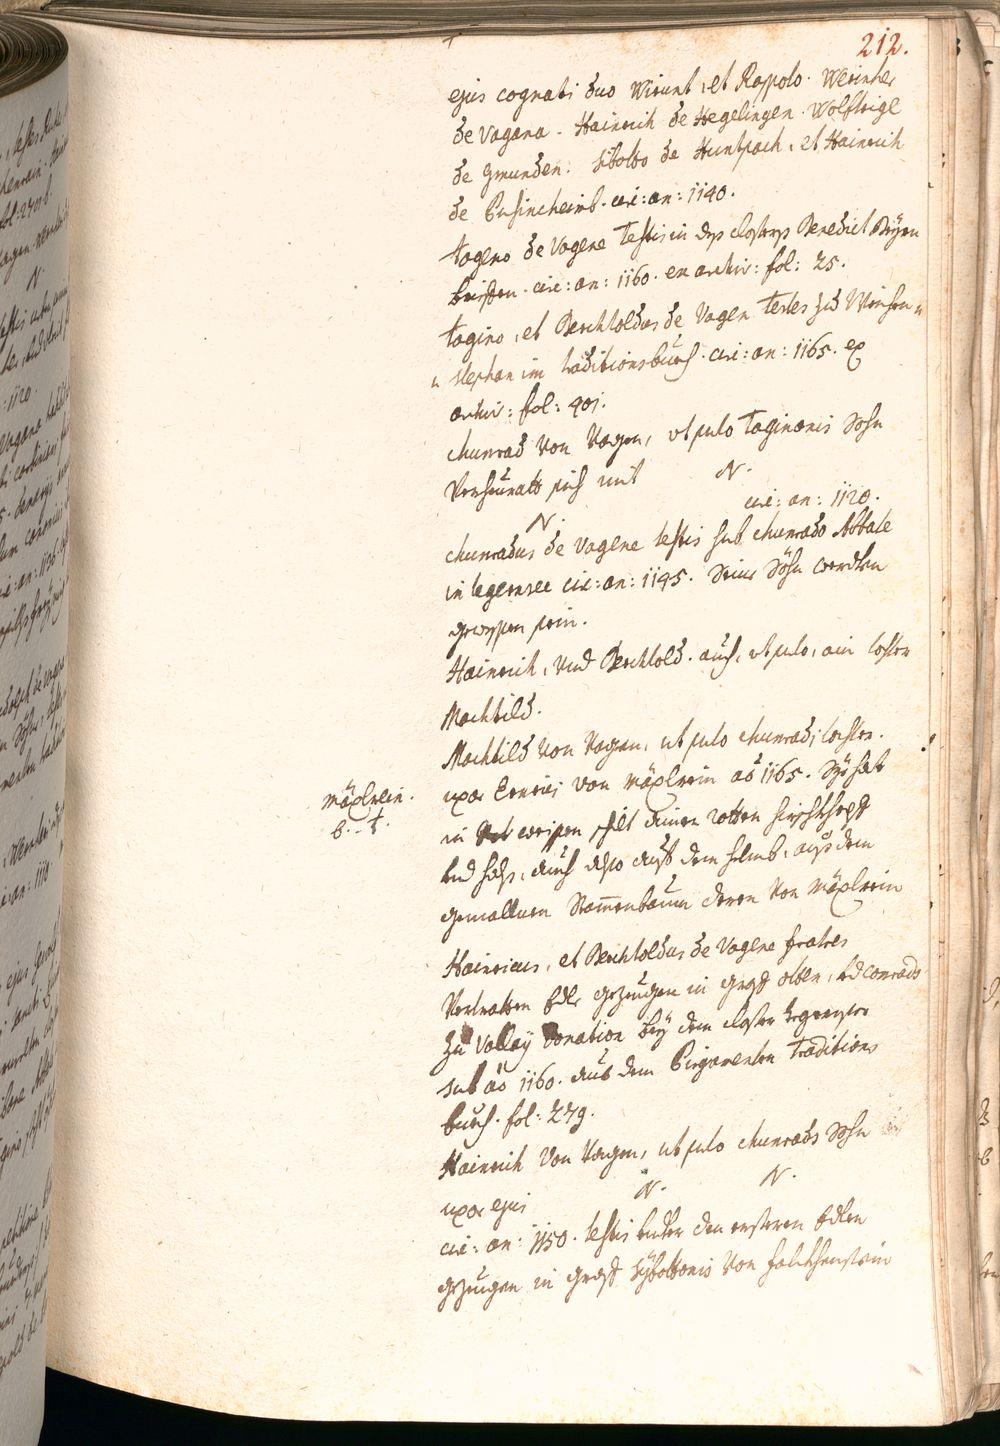 212.
ejus cognati duo Wirunt, et Rappolo. Werinher
de Vagana. Hainrich de Hegelingen. Wolftrige
de Gmunden. Siboldo de Huntpach, et Hainrich
de Pusincheimb. circ: an: 1140.
Tageno de Vagene testis in dess Closterss Benedict Beÿrn
brieffen. circ: an: 1160. ex archiv: fol: 25.
Tagino, et Berchtoldus de Vagen testes zu Weichen-
Stephan im traditionsbuech. circ: an: 1165. ex
archiv: fol: 401.
Chunrad von Vagen, ut puto Taginonis Sohn
Verheürath sich mit N.
circ: an: 1120.
N.
Chunradus de Vagene testis sub Chunrado Abbate
in tegernsee circ: an: 1145. Seine Söhn werdten
gewessen sein.
Hainrich, und Berchtold. auch, ut puto, ain tochter
Machtild.
Machtild von Vagen, ut puto Chunradi tochter.
uxor Ernesti von Mäxlrein aõ 1165. Sÿe hat
Mäxlrein.
6...t.
in weissen schilt einen rothen hirschkhopf
und halss, auch also auf dem helmb, auss dem
gemallnen Stammenbaum deren von Mäxlrein
Hainricus, et Berchtoldus de Vagene fratres
Vertratten Edle gezeugen in graff otten, und Conrads
zu Valley donation beÿ dem closter tegernsee
sub aõ 1160. auss dem traditions
buech. fol: 279.
Hainrich von Vagen, ut puto Chunrads Sohn
uxor ejus N. N.
circ: an: 1150. testis unter den ersteren Edlen
gezeugen in graff Sÿbottonis von Falckhenstein